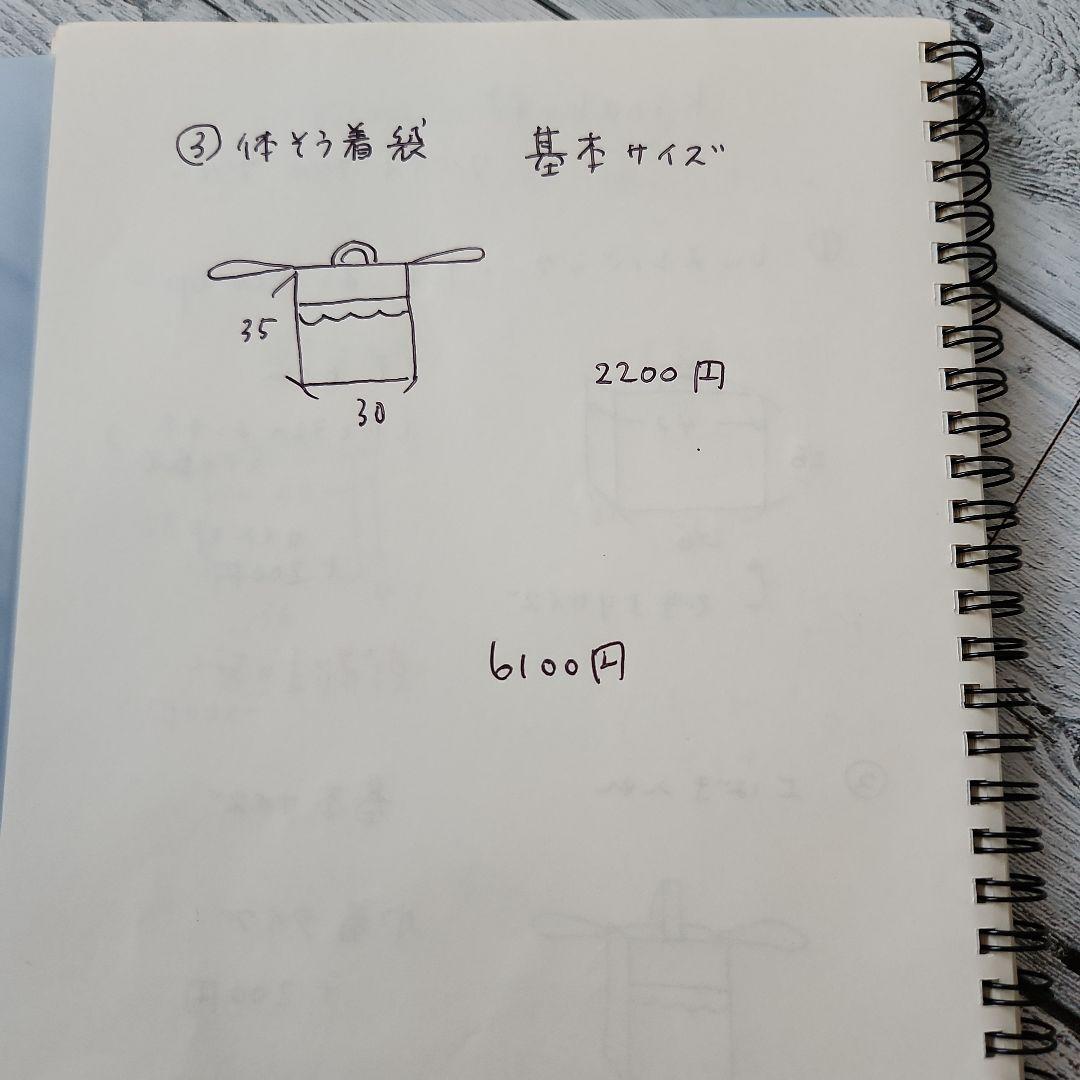 ③ 体そう着袋 基本サイズ
35
30
2200円
6100円